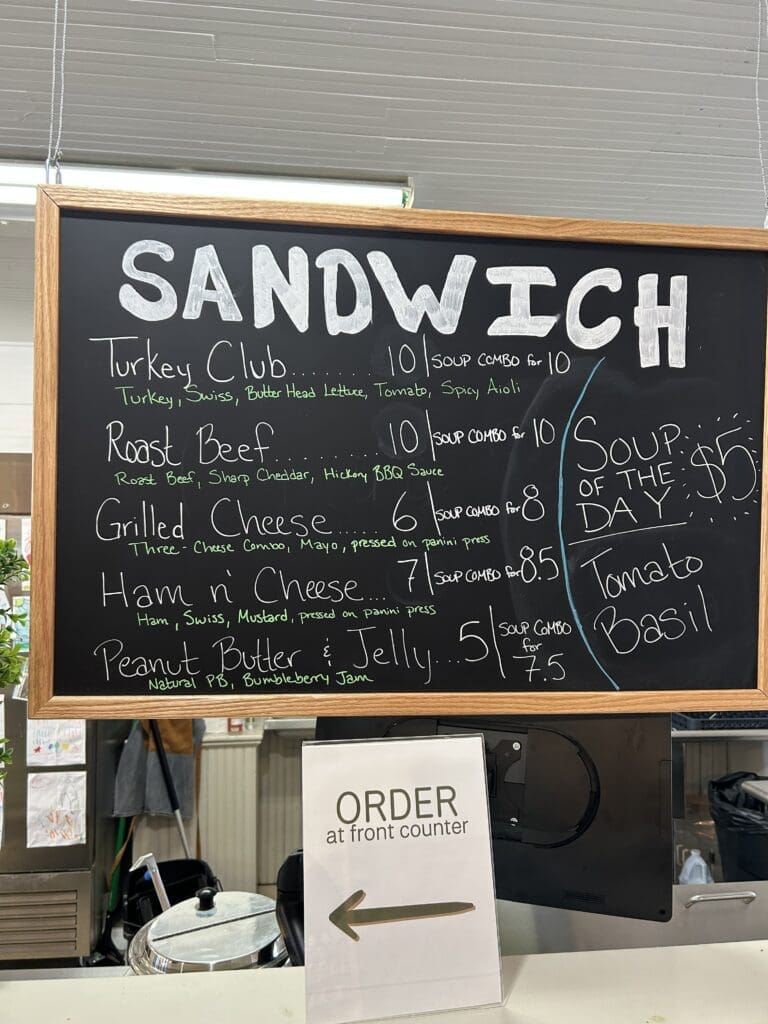 SANDWICH
Turkey Club....... 10 | SOUP COMBO for 10
Turkey, Swiss, Butter Head Lettuce, Tomato, Spicy Aioli
Roast Beef.......... 10 | SOUP COMBO for 10
Roast Beef, Sharp Cheddar, Hickory BBQ Sauce
Grilled Cheese..... 6 | SOUP COMBO for 8
Three-Cheese Combo, Mayo, pressed on panini press
Ham n' Cheese... 7 | SOUP COMBO for 8.5
Ham, Swiss, Mustard, pressed on panini press
Peanut Butter & Jelly...5 | SOUP COMBO
for
7.5
Natural PB, Bumbleberry Jam
SOUP
OF THE
DAY
$5
Tomato
Basil
ORDER
at front counter